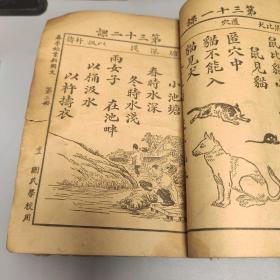 第三十一課
匿穴
鼠見貓
匿穴中
貓不能入
貓見犬
第三十二課
塘 深 淺
汲 杵 擣
小池塘
春時水深
冬時水淺
兩女子 在池畔
以桶汲水
以杵擣衣
國民學校用